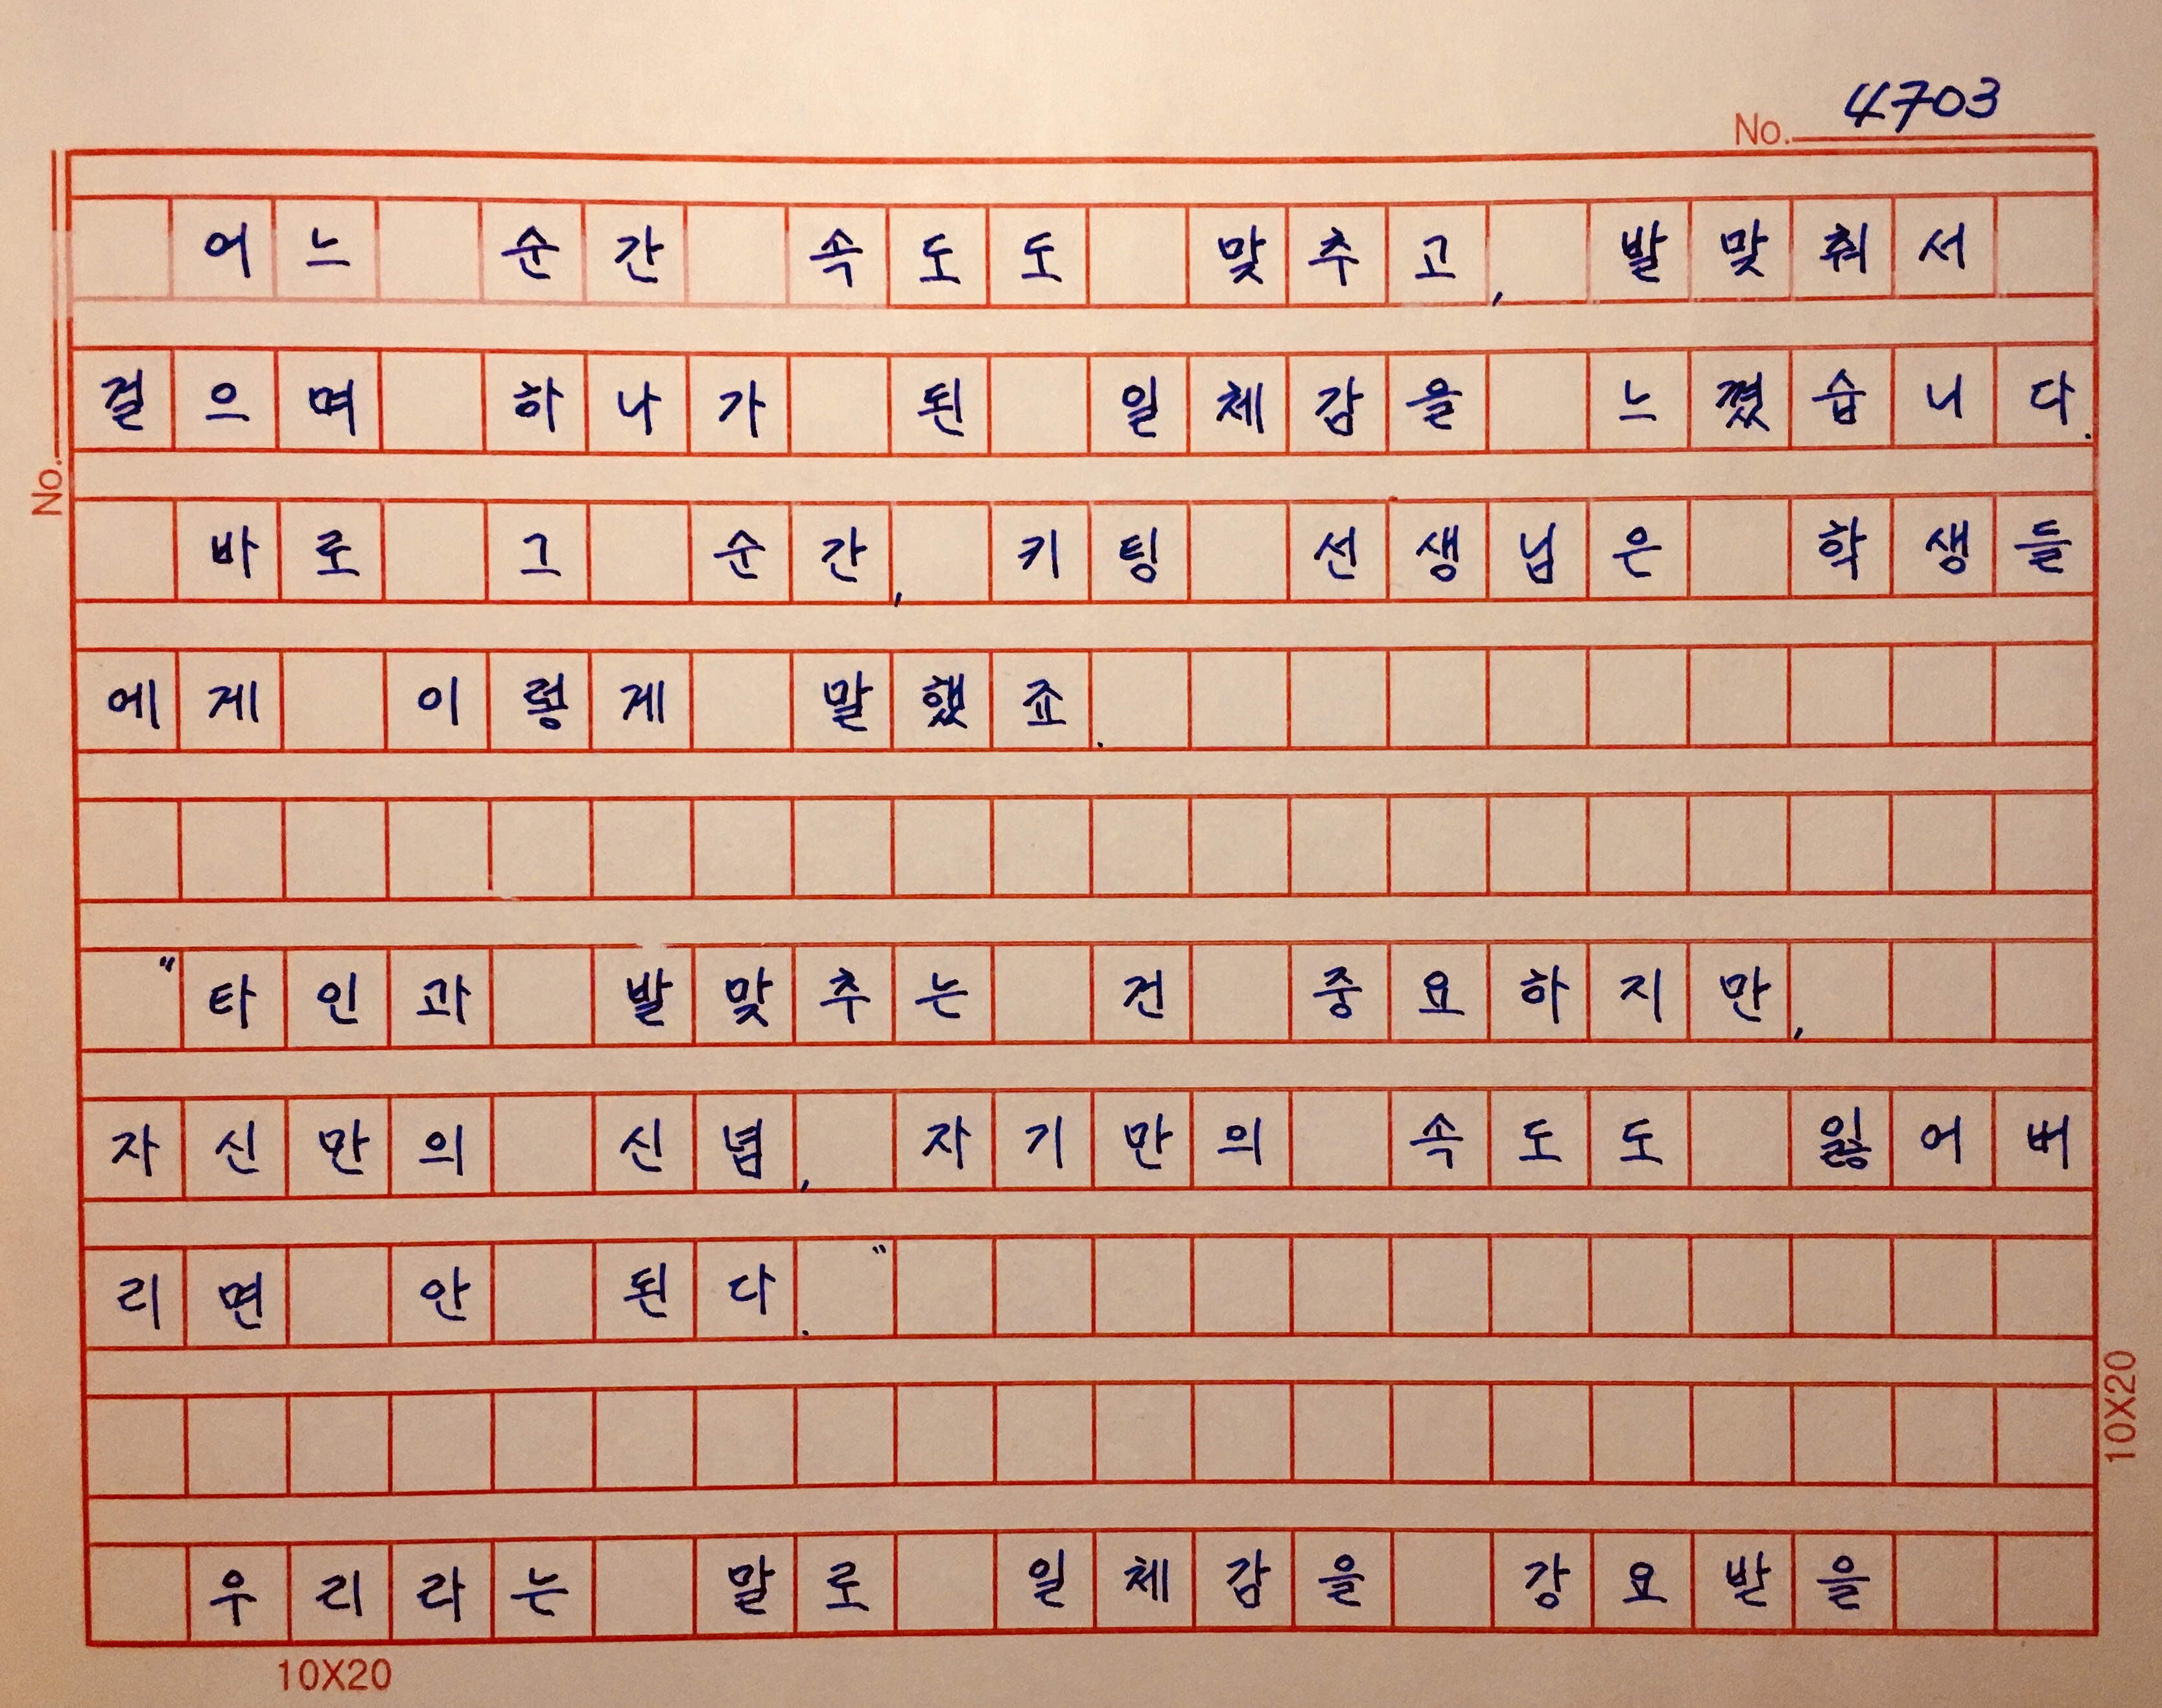 No. 4703
어느 순간 속도도 맞추고, 발맞춰서
걸으며 하나가 된 일체감을 느꼈습니다.
No.
바로 그 순간, 키팅 선생님은 학생들
에게 이렇게 말했죠.
"타인과 발맞추는 건 중요하지만,
자신만의 신념, 자기만의 속도도 잃어버
리면 안 된다."
우리라는 말로 일체감을 강요받을
10X20
10X20